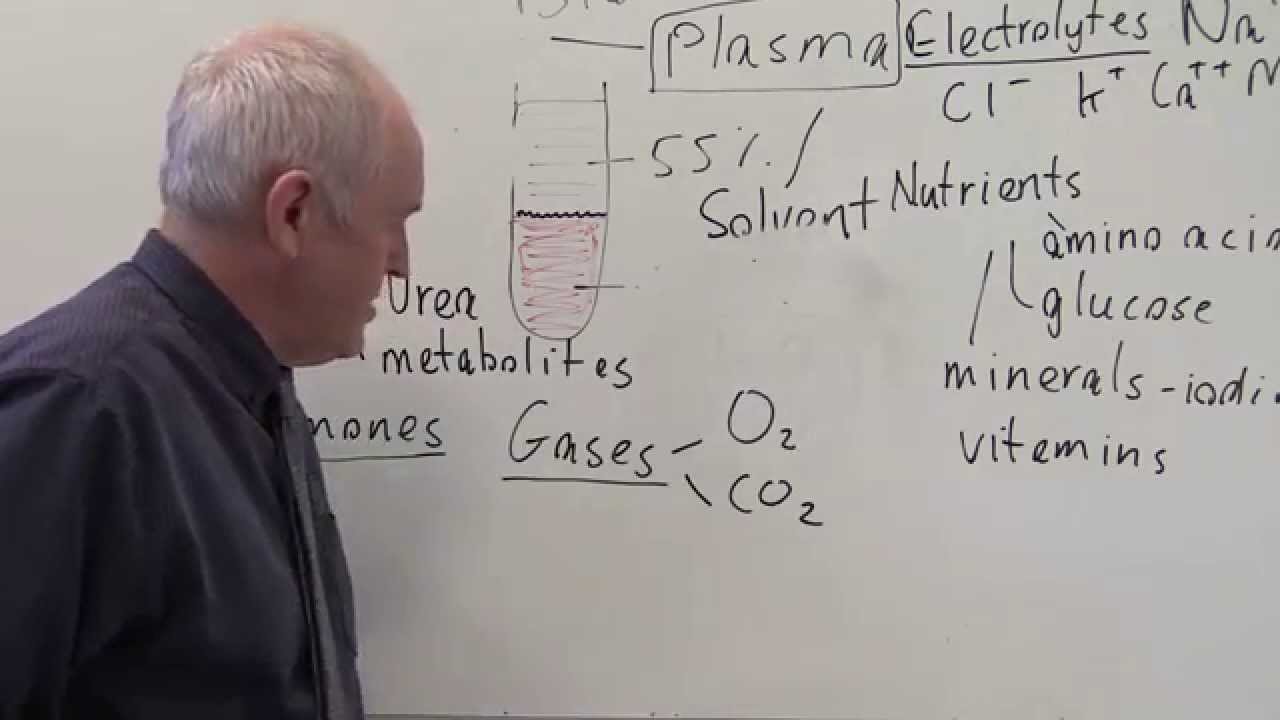 Plasma Electrolytes Na⁺
Cl⁻ K⁺ Ca⁺⁺ M
55%
Solvont Nutrients
amino acid
glucose
Urea
metabolites
minerals - iodi
mones
Gases O₂
CO₂
vitemins